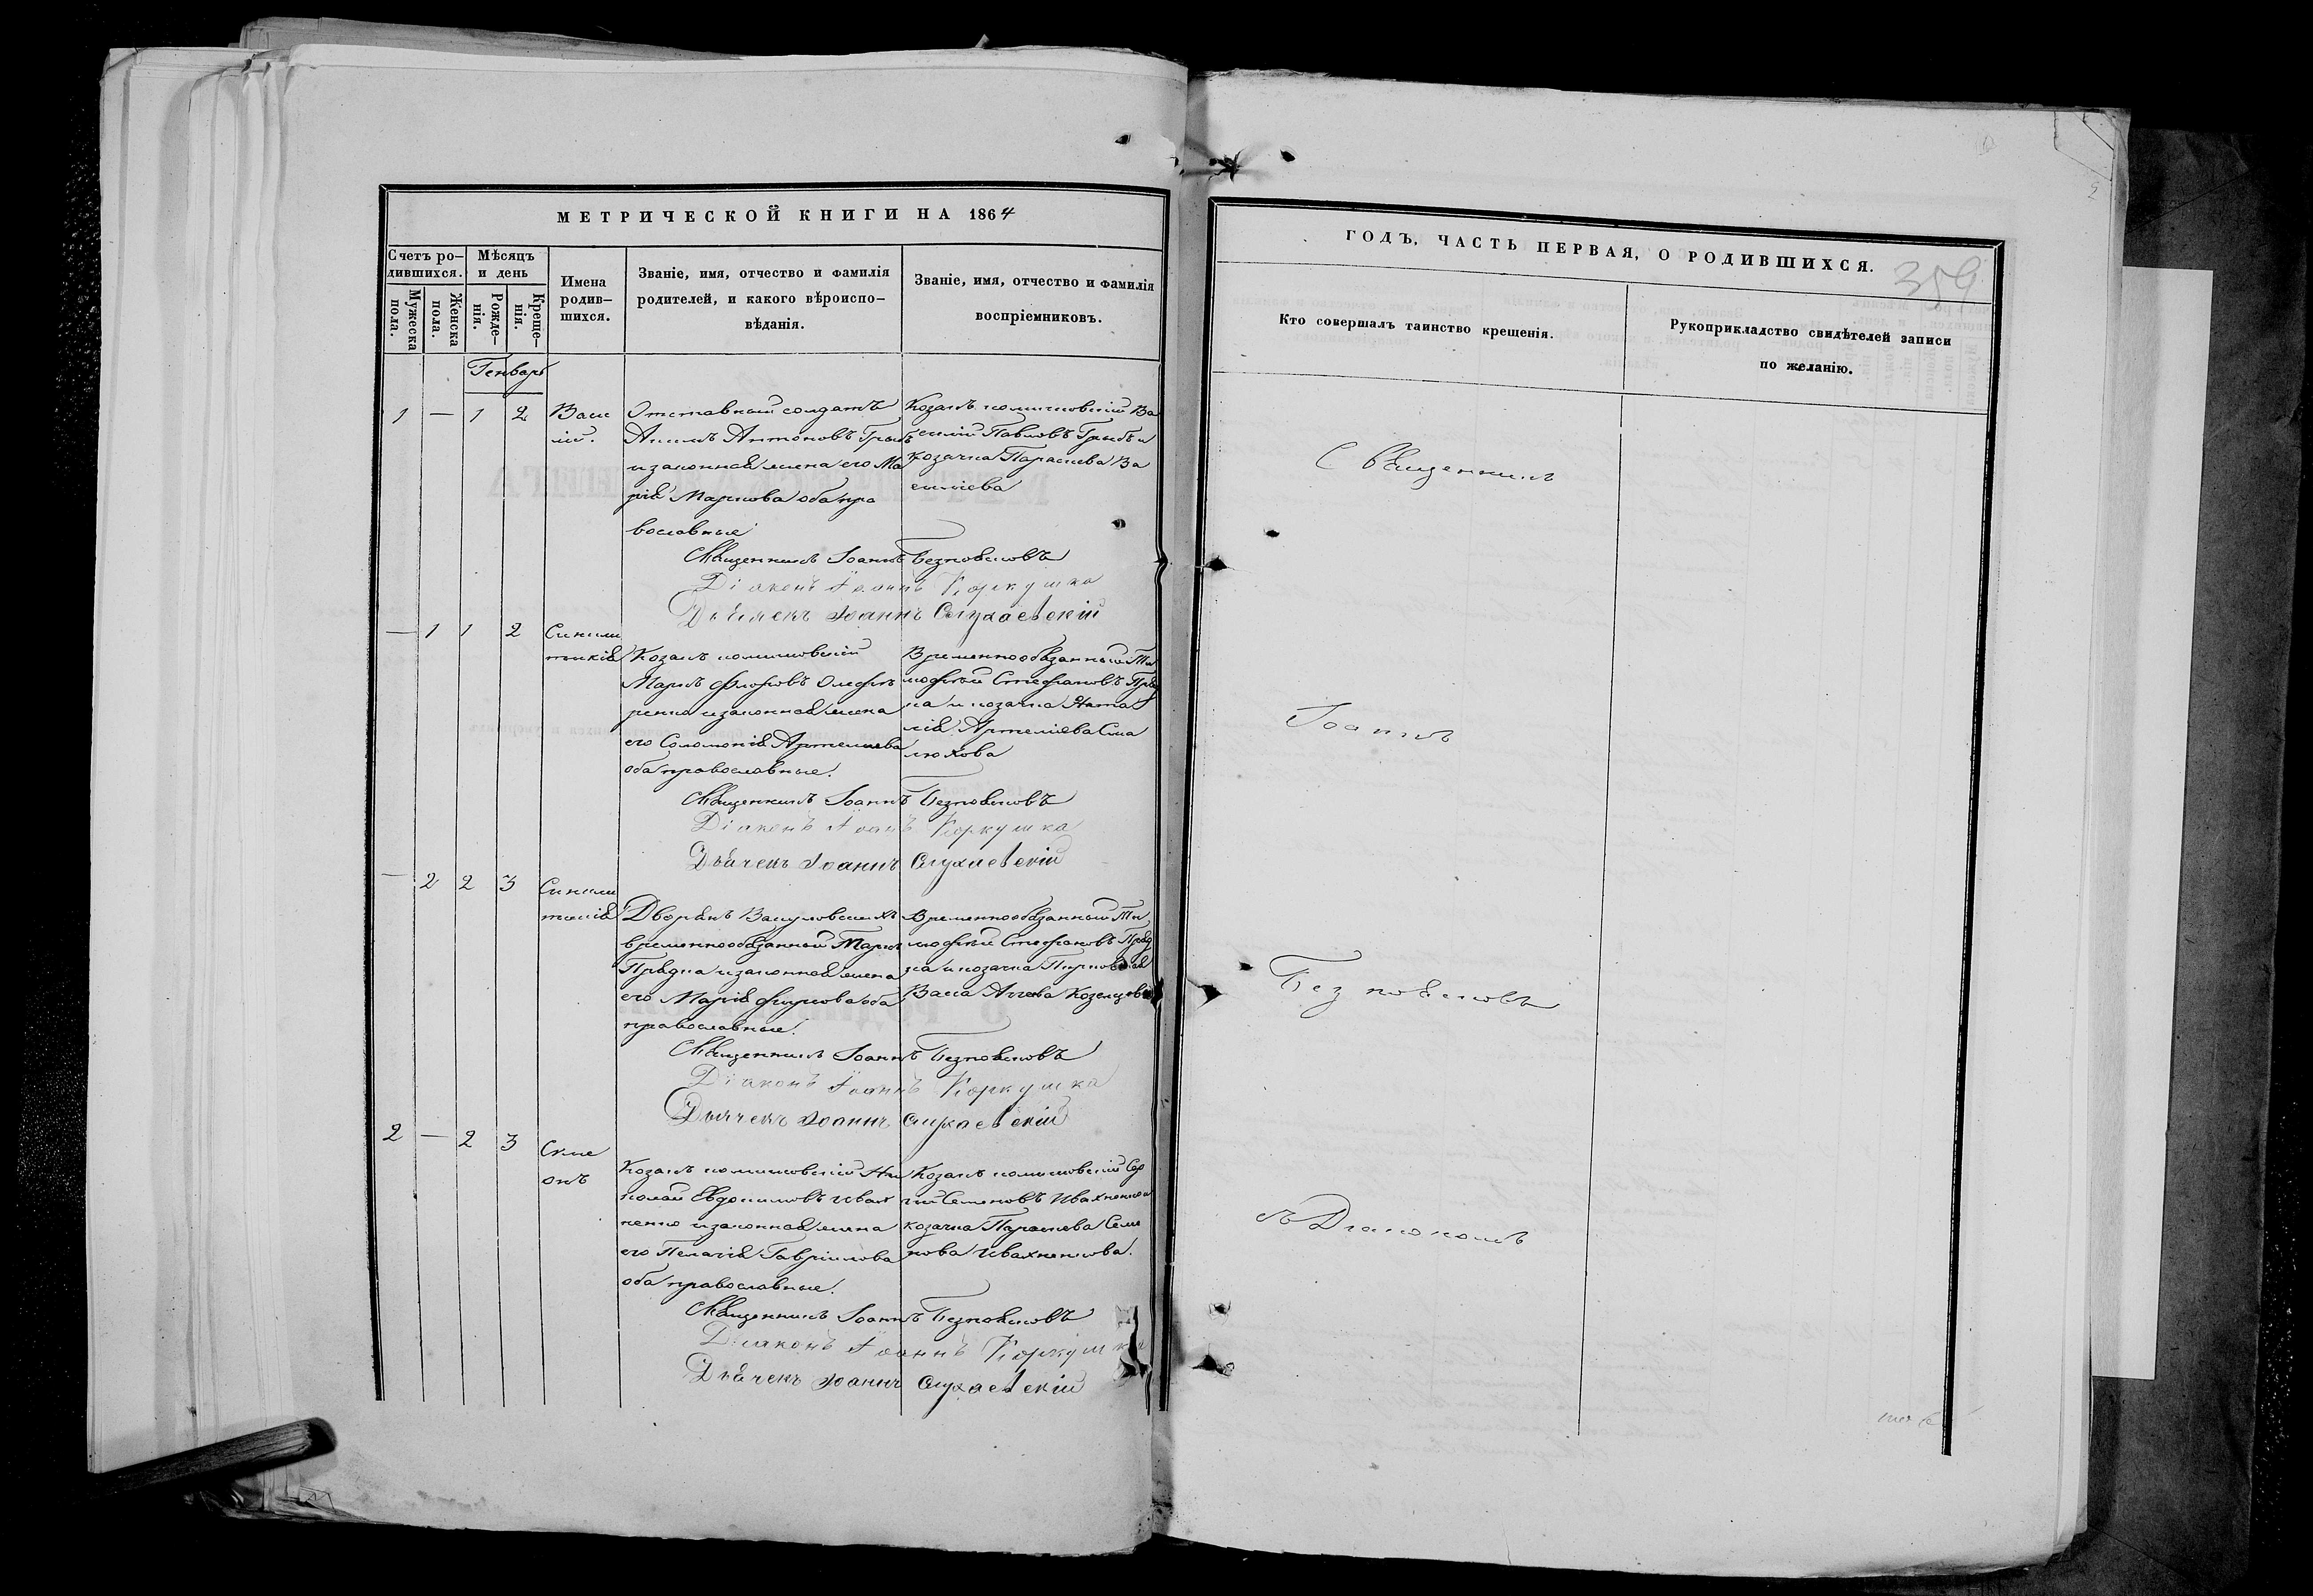 МЕТРИЧЕСКОЙ КНИГИ НА 1864
Счетъ ро-
дившихся.
Мѣсяцъ
и день
Мужеска
пола.
Женска
пола.
Рожде-
нія.
Креще-
нія.
Имена
родив-
шихся.
Званіе, имя, отчество и фамилія
родителей, и какого вѣроиспо-
вѣданія.
Званіе, имя, отчество и фамилія
воспріемниковъ.
Генварь
1 — 1 2
Васи
лій.
Отставный солдатъ
Антоновъ Грибъ
и законная жена его Ма
рія Маркова оба пра
вославные
Козакъ Ва
силій Павловъ Грибъ и
козачка Параскева Ва
силіева
Священникъ Іоаннъ
Діаконъ Іоаннъ Коркушка
Дьячекъ Іоаннъ Слухаевскій
— 1 1 2
Синкли
тикія
Козакъ
Маркъ Флоровъ
ренко и законная жена
его Соломонія Артемиева
оба православные.
Временнообязанный Ти
мофей Стефановъ Пряд
ка и козачка Ната
лія
Священникъ Іоаннъ
Діаконъ Іоаннъ Коркушка
Дьячекъ Іоаннъ Слухаевскій
— 2 2 3
Синкли
тикія
Дворянъ
временнообязанный Маркъ
Прядка и законная жена
его Марія оба
православные.
Временнообязанный Ти
мофей Стефановъ Пряд
ка и козачка
Священникъ Іоаннъ
Діаконъ Іоаннъ Коркушка
Дьячекъ Іоаннъ Слухаевскій
2 — 2 3
Симе
онъ
Козакъ Ни
колай Евдокимовъ Ивах
ненко и законная жена
его Пелагія Гавріилова
оба православные.
Козакъ
Семеновъ Ивахненко и
козачка Параскева Семе
нова Ивахненкова.
Священникъ Іоаннъ
Діаконъ Іоаннъ Коркушка
Дьячекъ Іоаннъ Слухаевскій
ГОДЪ, ЧАСТЬ ПЕРВАЯ, О РОДИВШИХСЯ.
359
Кто совершалъ таинство крещенія.
Рукоприкладство свидѣтелей записи
по желанію.
Священникъ
Іоаннъ
съ Діакономъ